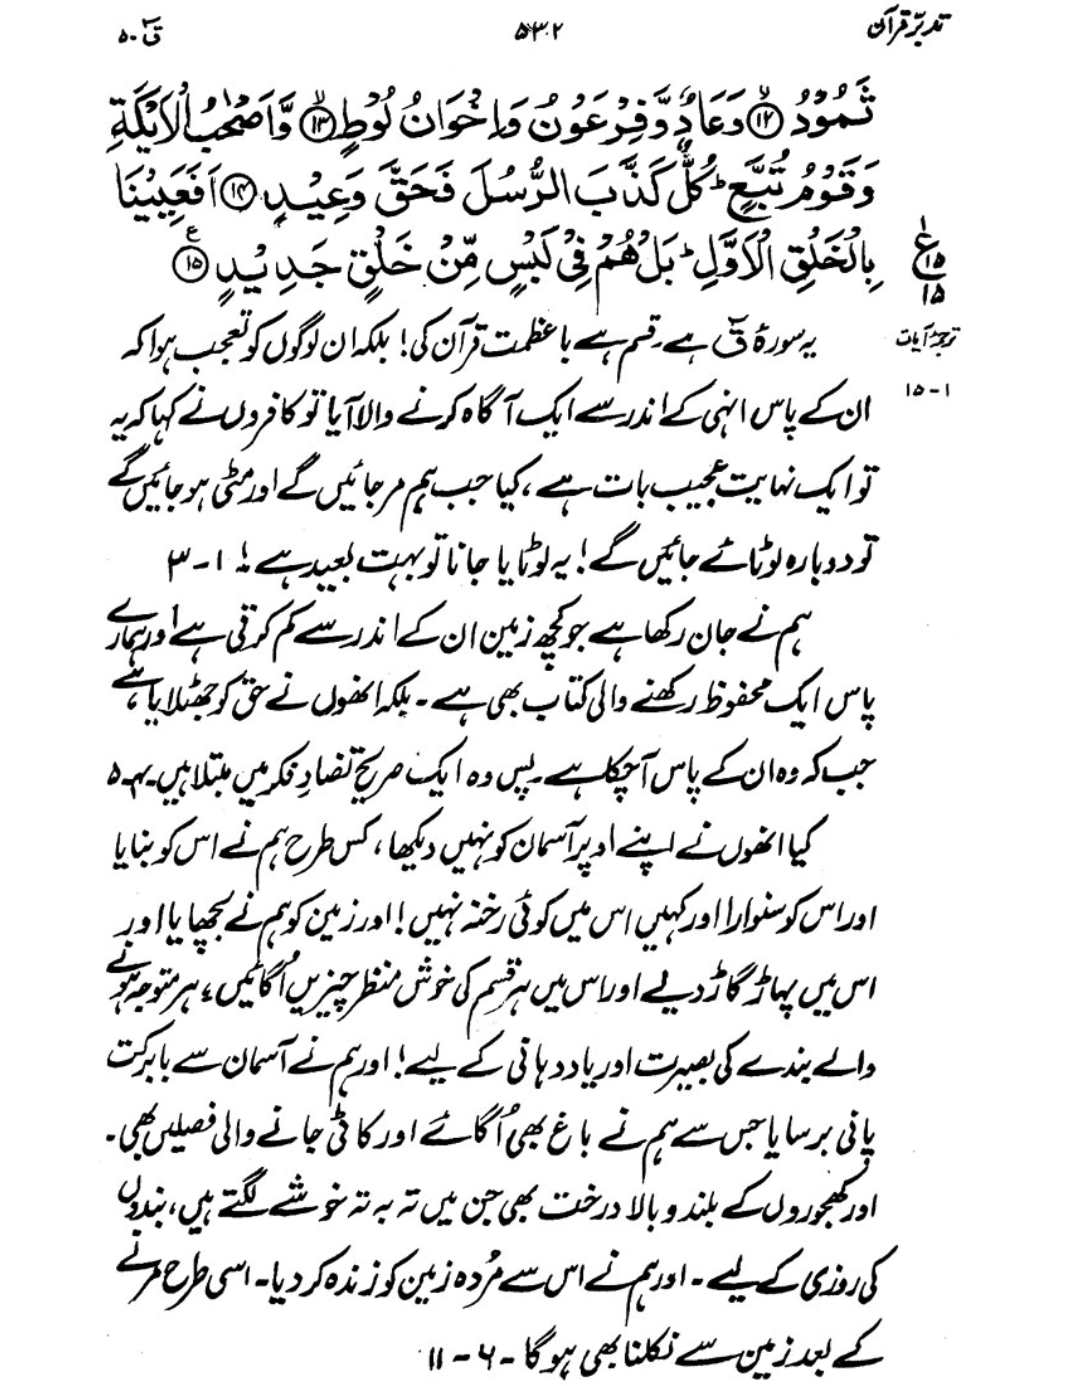 تدبرِ قرآن ۵۳۲ قٓ ۵۰
ثَمُوْدُ ﴿۱۲﴾ وَعَادٌ وَّفِرْعَوْنُ وَاِخْوَانُ لُوْطٍ ﴿۱۳﴾ وَّاَصْحٰبُ الْاَيْكَةِ
وَقَوْمُ تُبَّعٍ ؕ كُلٌّ كَذَّبَ الرُّسُلَ فَحَقَّ وَعِيْدِ ﴿۱۴﴾ اَفَعَيِيْنَا
بِالْخَلْقِ الْاَوَّلِ ؕ بَلْ هُمْ فِيْ لَبْسٍ مِّنْ خَلْقٍ جَدِيْدٍ ﴿۱۵﴾
ع
۱۵
۱۵
ترجمۂ آیات
۱-۱۵
یہ سورۂ قٓ ہے۔ قسم ہے باعظمت قرآن کی! بلکہ ان لوگوں کو تعجب ہوا کہ
ان کے پاس انہی کے اندر سے ایک آگاہ کرنے والا آیا تو کافروں نے کہا کہ یہ
تو ایک نہایت عجیب بات ہے، کیا جب ہم مر جائیں گے اور مٹی ہو جائیں گے
تو دوبارہ لوٹائے جائیں گے! یہ لوٹایا جانا تو بہت بعید ہے! ۱-۳
ہم نے جان رکھا ہے جو کچھ زمین ان کے اندر سے کم کرتی ہے اور ہمارے
پاس ایک محفوظ رکھنے والی کتاب بھی ہے۔ بلکہ انھوں نے حق کو جھٹلایا ہے
جب کہ وہ ان کے پاس آچکا ہے۔ پس وہ ایک صریح تضادِ فکر میں مبتلا ہیں۔ ۴-۵
کیا انھوں نے اپنے اوپر آسمان کو نہیں دیکھا، کس طرح ہم نے اس کو بنایا
اور اس کو سنوارا اور کہیں اس میں کوئی رخنہ نہیں! اور زمین کو ہم نے بچھایا اور
اس میں پہاڑ گاڑ دیے اور اس میں ہر قسم کی خوش منظر چیزیں اُگائیں، ہر متوجہ ہونے
والے بندے کی بصیرت اور یاددہانی کے لیے! اور ہم نے آسمان سے بابرکت
پانی برسایا جس سے ہم نے باغ بھی اُگائے اور کاٹی جانے والی فصلیں بھی۔
اور کھجوروں کے بلند و بالا درخت بھی جن میں تہ بہ تہ خوشے لگتے ہیں، بندوں
کی روزی کے لیے۔ اور ہم نے اس سے مُردہ زمین کو زندہ کر دیا۔ اسی طرح مرنے
کے بعد زمین سے نکلنا بھی ہوگا۔ ۶-۱۱